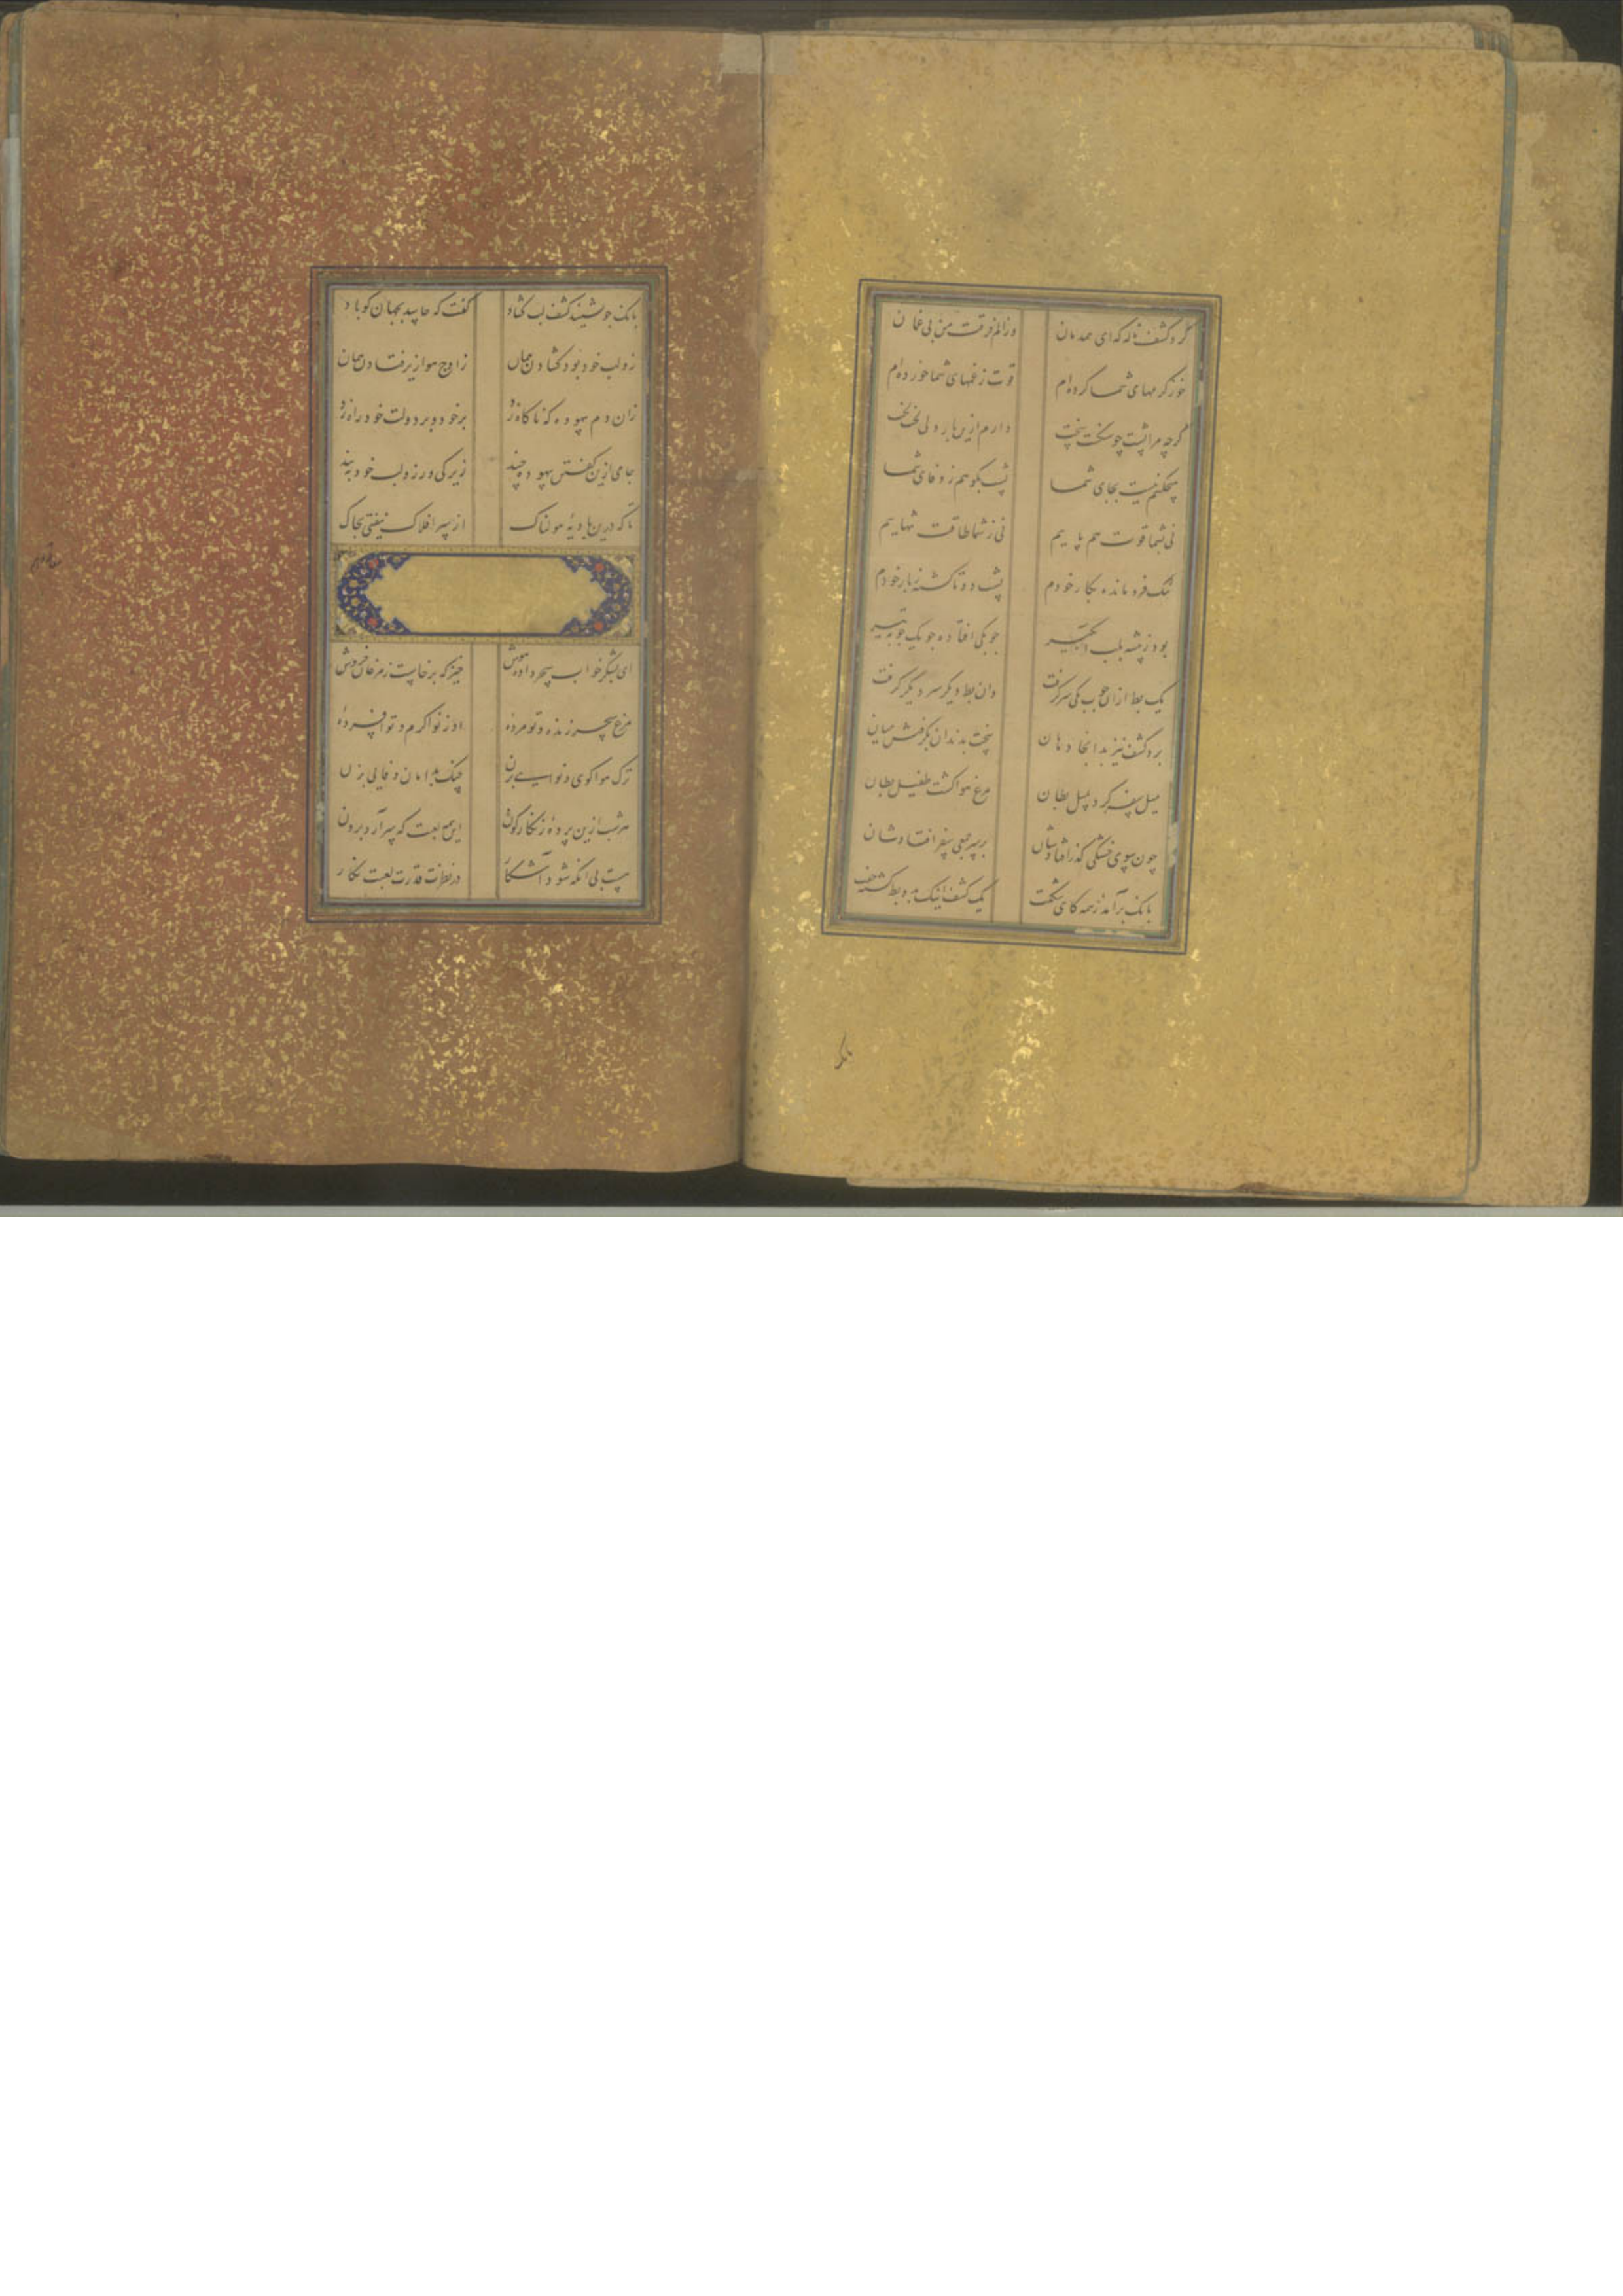 کرد کشف ناله که ای همدمان وز الم فرقت من بی غمان
خو ز کرمهای شما کرده‌ام قوت ز غمهای شما خورده‌ام
گرچه مرا پشت چو سنگست سخت دارم ازین بار دلی لخت لخت
نی بشما قوت هم پاییم نی ز شما طاقت تنهاییم
تنگ فرو مانده بکار خودم پشت دوتا گشته ز بار خودم
بود ز بیشه بلب آبگیر چوبکی افتاده چو یک چوبه تیر
یک بط از آن چوب یکی سر گرفت وان بط دیگر سر دیگر گرفت
برد کشف نیز بدانجا دهان سخت بدندان بگرفتش میان
میل سفر کرد بمیل بطان مرغ هوا گشت طفیل بطان
چون سوی خشکی گذر افتادشان بر سر جمعی سفر افتادشان
بانک برآمد ز همه کای شگفت یک کشف اینک بدو بط گشته جفت
بانک
بانک چو بشنید کشف لب گشاد گفت که حاسد بجهان کور باد
زو لب خود بود گشادن همان ز اوج هوا زیر فتادن همان
زان دم بیهوده که ناگاه زد بر خود و بر دولت خود راه زد
جامی ازین گفتن بیهوده چند زیرکی ورز و لب خود ببند
تا که درین بادیه هولناک از سر افلاک نیفتی بخاک
ای بشکر خواب سحر داده هوش خیز که برخاست ز مرغان خروش
مرغ سحر زنده و تو مرده او ز نوا گرم و تو افسرده
ترک هوا گوی و نوایی بزن چنگ بدامان وفایی بزن
هر شب ازین پرده زنگارگون این همه لعبت که سر آرد برون
نیست پی آنکه شود آشکار در نظرت قدرت لعبت نگار